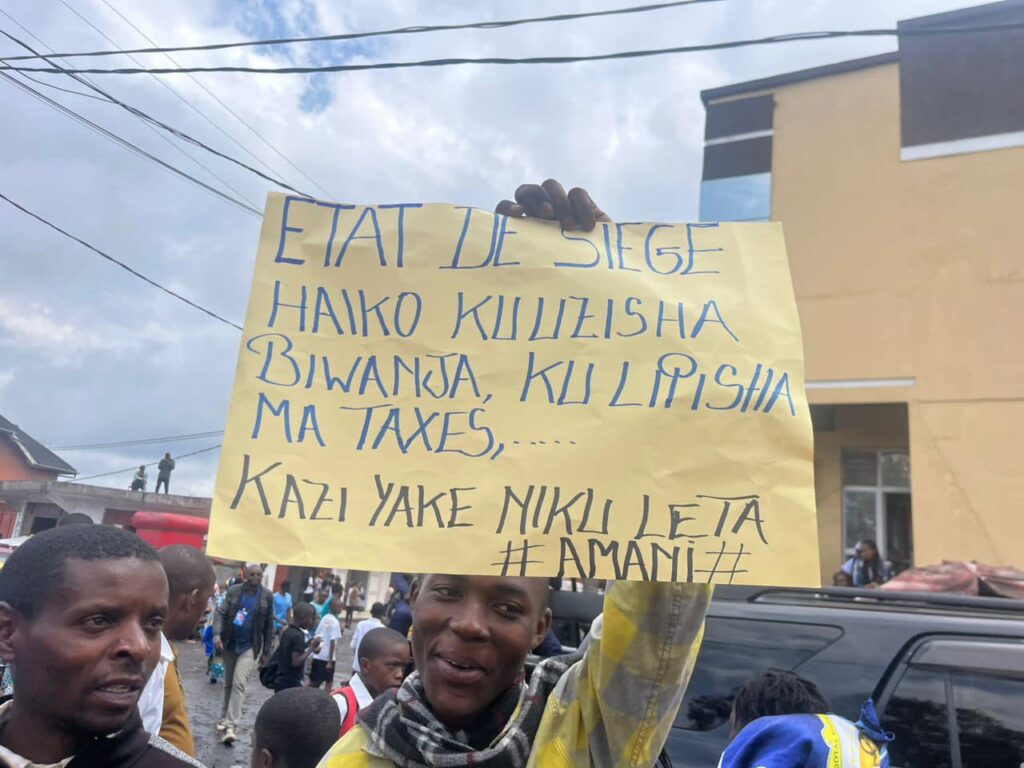 ETAT DE SIEGE
HAIKO KUUZISHA
BIWANJA, KU LIPISHA
MA TAXES,.....
KAZI YAKE NIKU LETA
#AMANi#